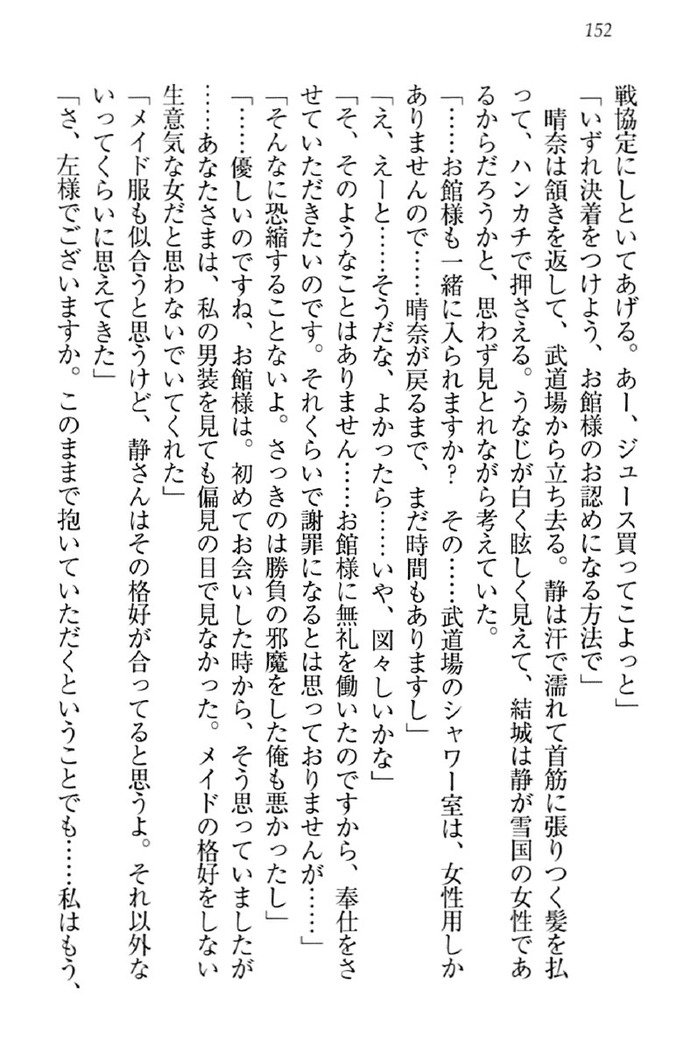 152
戦協定にしといてあげる。あー、ジュース買ってこよっと」
「いずれ決着をつけよう、お館様のお認めになる方法で」
晴奈は頷きを返して、武道場から立ち去る。静は汗で濡れて首筋に張りつく髪を払
って、ハンカチで押さえる。うなじが白く眩しく見えて、結城は静が雪国の女性であ
るからだろうかと、思わず見とれながら考えていた。
「……お館様も一緒に入られますか？　その……武道場のシャワー室は、女性用しか
ありませんので……晴奈が戻るまで、まだ時間もありますし」
「え、えーと……そうだな、よかったら……いや、図々しいかな」
「そ、そのようなことはありません……お館様に無礼を働いたのですから、奉仕をさ
せていただきたいのです。それくらいで謝罪になるとは思っておりませんが……」
「そんなに恐縮することないよ。さっきのは勝負の邪魔をした俺も悪かったし」
「……優しいのですね、お館様は。初めてお会いした時から、そう思っていましたが
……あなたさまは、私の男装を見ても偏見の目で見なかった。メイドの格好をしない
生意気な女だと思わないでいてくれた」
「メイド服も似合うと思うけど、静さんはその格好が合ってると思うよ。それ以外な
いってくらいに思えてきた」
「さ、左様でございますか。このままで抱いていただくということでも……私はもう、